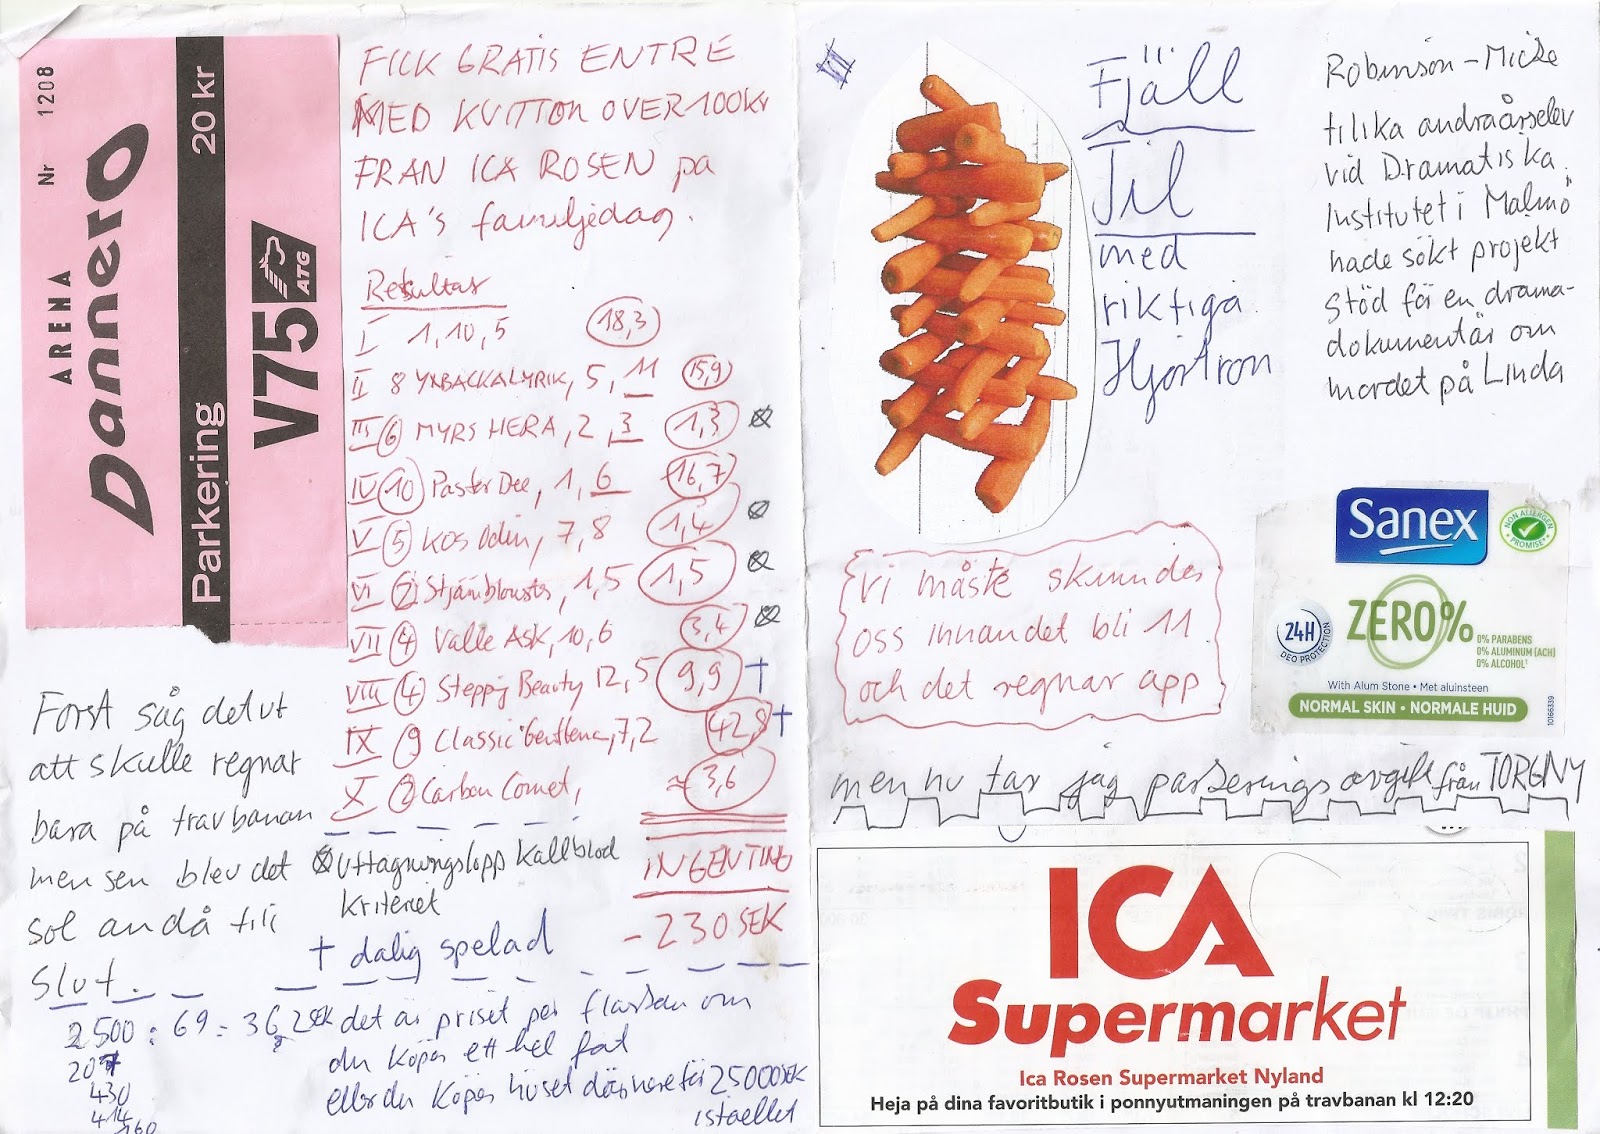 Nr 1208
ARENA
Dannero
Parkering 20 kr
V75 ATG
FICK GRATIS ENTRE
MED KVITTON OVER 100 Kr
FRAN ICA ROSEN på
ICA's familjedag.
Resultat
I 1, 10, 5 18,3
II 8 YXBACKALYRIK, 5, 11 15,9
III 6 MYRS HERA, 2, 3 1,3
IV 10 Paster Dee, 1, 6 16,7
V 5 Kos Odin, 7, 8 1,4
VI 2 Stjärnblousten, 1, 5 1,5
VII 4 Valle Ask, 10, 6 3,4
VIII 4 Stepping Beauty 12, 5 9,9 †
IX 9 Classic Gentleman, 7, 2 42,8 †
X 2 Carbon Comet, ≈ 3,6
INGENTING
- 230 SEK
Uttagningslopp Kallblod
kriteriet
† dålig spelad
Forst såg det ut
att skulle regnar
bara på travbanan
men sen blev det
sol andå till
slut.
2500 : 69 = 36,2 SEK det är priset per flaskan om
du köper ett hel fat
eller du köper huset därnere för 25000 SEK
istaellet
207
430
414
160
Fjäll
Til
med
riktiga
Hjortron
Robinson-Micke
tilika andraårselev
vid Dramatiska
Institutet i Malmö
hade sökt projekt
stöd för en drama-
dokumentär om
mordet på Linda
Vi måste skundes
oss innan det bli 11
och det regnar app
Sanex
NON ALLERGEN PROMISE*
ZERO%
24H
DEO PROTECTION
0% PARABENS
0% ALUMINUM (ACH)
0% ALCOHOL¹
With Alum Stone • Met aluinsteen
NORMAL SKIN • NORMALE HUID
10166339
men nu tar jag parkerings avgift från TORGNY
ICA
Supermarket
Ica Rosen Supermarket Nyland
Heja på dina favoritbutik i ponnyutmaningen på travbanan kl 12:20